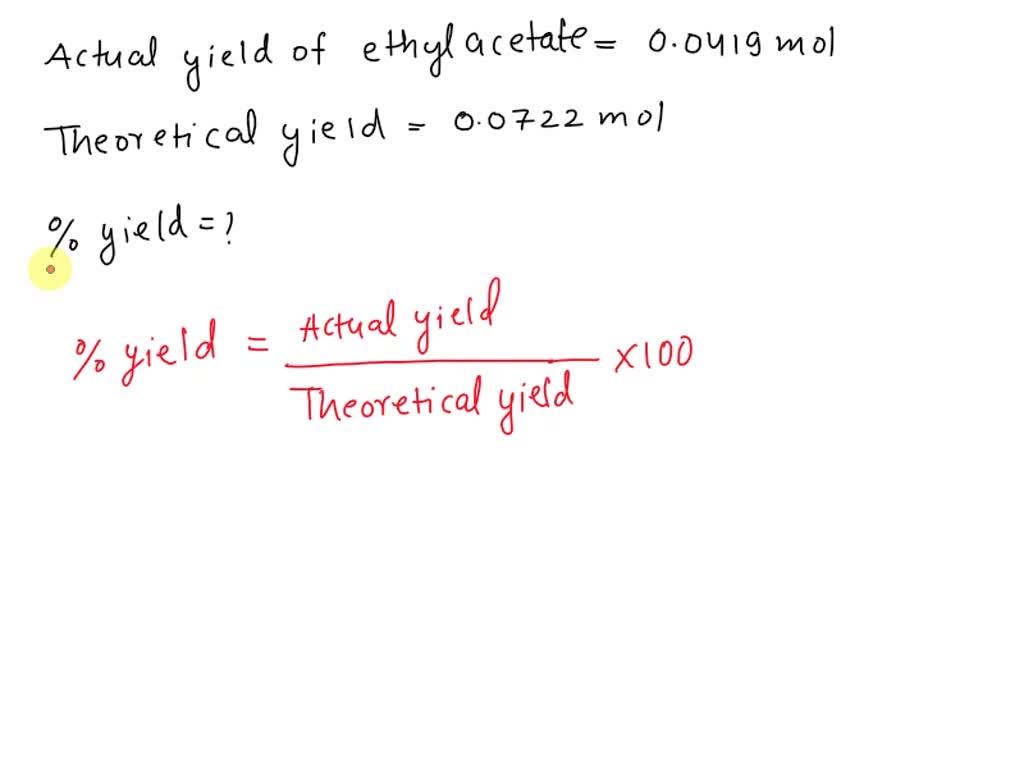 Actual yield of ethylacetate = 0.0419 mol
Theoretical yield = 0.0722 mol
% yield = ?
% yield = Actual yield / Theoretical yield × 100